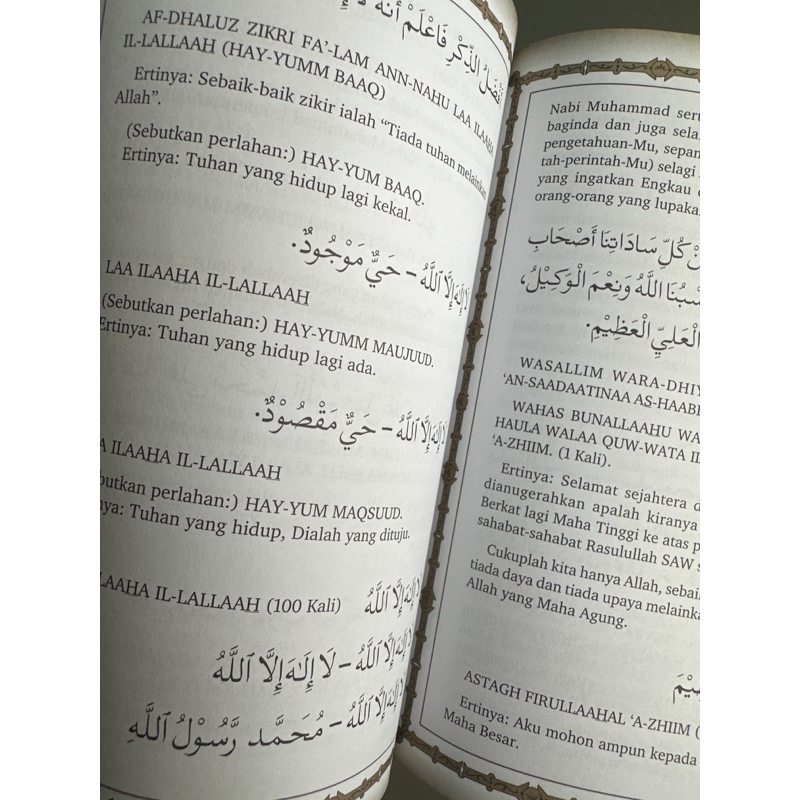 أَفْضَلُ الذِّكْرِ فَاعْلَمْ أَنَّهُ
AF-DHALUZ ZIKRI FA’-LAM ANN-NAHU LAA ILAAHA
IL-LALLAAH (HAY-YUMM BAAQ)
Ertinya: Sebaik-baik zikir ialah “Tiada tuhan melainkan
Allah”.
(Sebutkan perlahan:) HAY-YUM BAAQ.
Ertinya: Tuhan yang hidup lagi kekal.
لَا إِلَهَ إِلَّا اللَّهُ – حَيٌّ مَوْجُودٌ.
LAA ILAAHA IL-LALLAAH
(Sebutkan perlahan:) HAY-YUMM MAUJUUD.
Ertinya: Tuhan yang hidup lagi ada.
لَا إِلَهَ إِلَّا اللَّهُ – حَيٌّ مَقْصُوْدٌ.
A ILAAHA IL-LALLAAH
butkan perlahan:) HAY-YUM MAQSUUD.
nya: Tuhan yang hidup, Dialah yang dituju.
LAAHA IL-LALLAAH (100 Kali) لَا إِلَهَ إِلَّا اللَّهُ
لَا إِلَهَ إِلَّا اللَّهُ – لَا إِلَهَ إِلَّا اللَّهُ
لَا إِلَهَ إِلَّا اللَّهُ – مُحَمَّد رَّسُوْلُ اللَّهِ
Nabi Muhammad sert
baginda dan juga sela
pengetahuan-Mu, sepan
tah-perintah-Mu) selagi
yang ingatkan Engkau
orang-orang yang lupaka
نْ كُلِّ سَادَاتِنَا أَصْحَابِ
سْبُنَا اللَّهُ وَنِعْمَ الْوَكِيْلُ،
الْعَلِيِّ الْعَظِيْمِ.
WASALLIM WARA-DHIY
‘AN-SAADAATINAA AS-HAABI
WAHAS BUNALLAAHU WA
HAULA WALAA QUW-WATA IL
‘A-ZHIIM. (1 Kali).
Ertinya: Selamat sejahtera d
dianugerahkan apalah kiranya
Berkat lagi Maha Tinggi ke atas p
sahabat-sahabat Rasulullah SAW s
Cukuplah kita hanya Allah, sebai
tiada daya dan tiada upaya melainka
Allah yang Maha Agung.
ASTAGH FIRULLAAHAL ‘A-ZHIIM (
Ertinya: Aku mohon ampun kepada
Maha Besar.